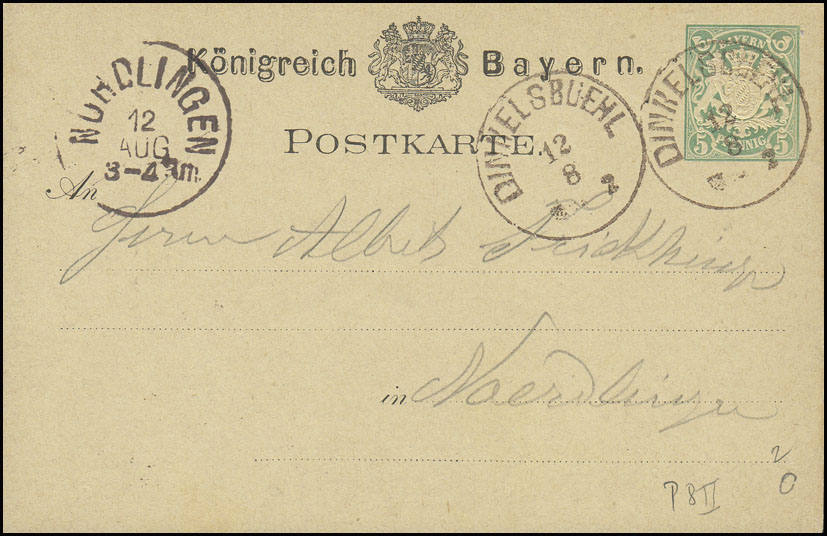 Königreich Bayern.
POSTKARTE.
NÖRDLINGEN
12
AUG
3-4 Nm.
DINKELSBUEHL
12
8
2
DINKELSBUEHL
12
8
2
BAYERN
5 PFENNIG 5
An
Herrn Albert
in Noerdlingen
P 8 II
20